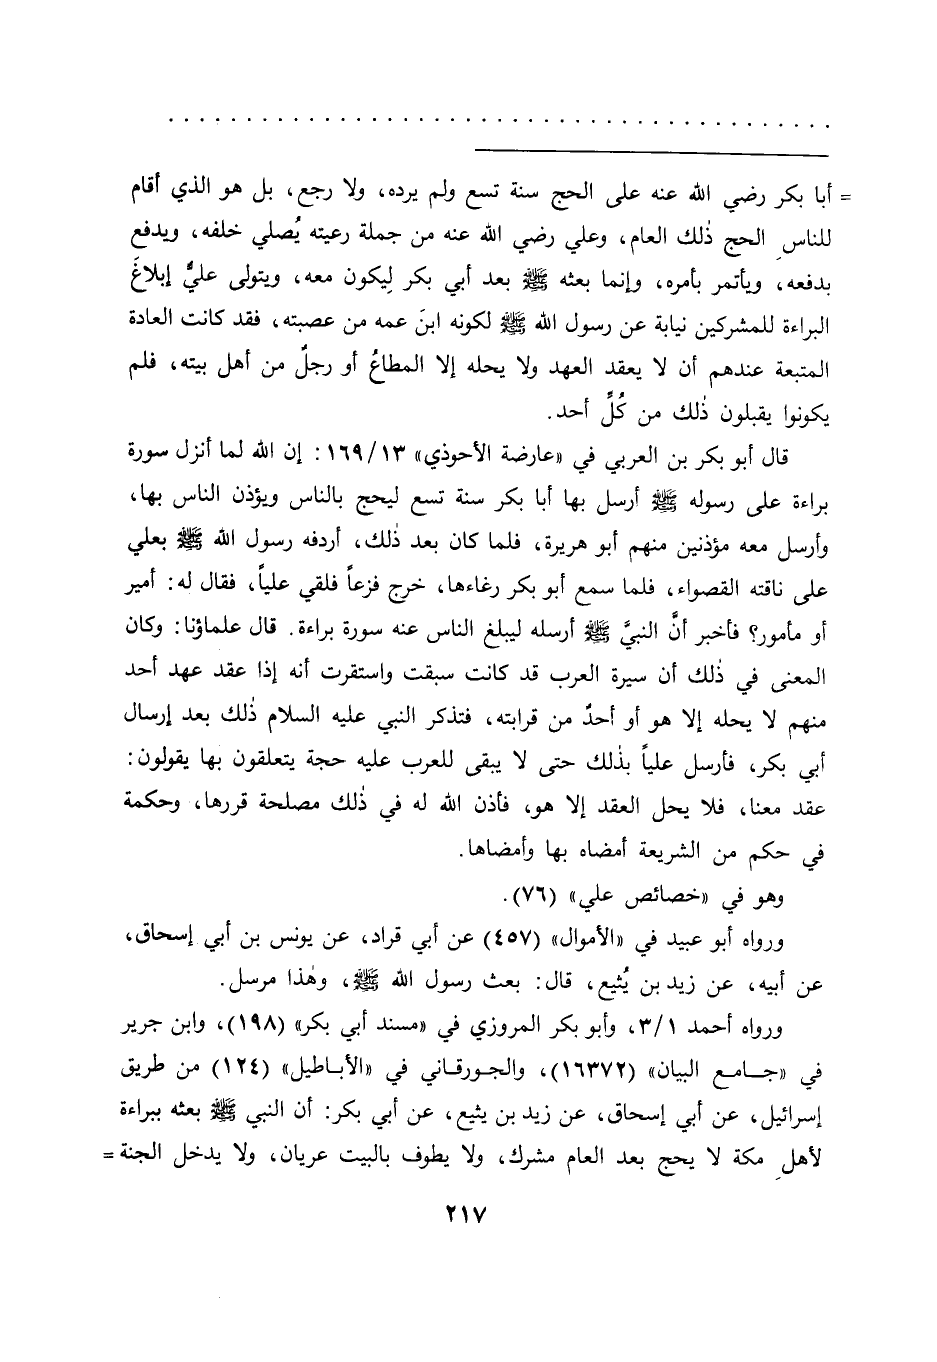 = أبا بكر رضي الله عنه على الحج سنة تسع ولم يرده، ولا رجع، بل هو الذي أقام
للناسِ الحج ذٰلك العام، وعلي رضي الله عنه من جملة رعيته يُصلي خلفه، ويدفع
بدفعه، ويأتمر بأمره، وإنما بعثه ﷺ بعد أبي بكر لِيكون معه، ويتولى عليٌّ إبلاغَ
البراءة للمشركين نيابة عن رسول الله ﷺ لكونه ابنَ عمه من عصبته، فقد كانت العادة
المتبعة عندهم أن لا يعقد العهد ولا يحله إلا المطاعُ أو رجلٌ من أهل بيته، فلم
يكونوا يقبلون ذٰلك من كُلِّ أحد.
قال أبو بكر بن العربي في «عارضة الأحوذي» ١٣/١٦٩: إن الله لما أنزل سورة
براءة على رسوله ﷺ أرسل بها أبا بكر سنة تسع ليحج بالناس ويؤذن الناس بها،
وأرسل معه مؤذنين منهم أبو هريرة، فلما كان بعد ذٰلك، أردفه رسول الله ﷺ بعلي
على ناقته القصواء، فلما سمع أبو بكر رغاءها، خرج فزعاً فلقي علياً، فقال له: أمير
أو مأمور؟ فأخبر أنَّ النبيَّ ﷺ أرسله ليبلغ الناس عنه سورة براءة. قال علماؤنا: وكان
المعنى في ذٰلك أن سيرة العرب قد كانت سبقت واستقرت أنه إذا عقد عهد أحد
منهم لا يحله إلا هو أو أحدٌ من قرابته، فتذكر النبي عليه السلام ذٰلك بعد إرسال
أبي بكر، فأرسل علياً بذٰلك حتى لا يبقى للعرب عليه حجة يتعلقون بها يقولون:
عقد معنا، فلا يحل العقد إلا هو، فأذن الله له في ذٰلك مصلحة قررها، وحكمة
في حكم من الشريعة أمضاه بها وأمضاها.
وهو في «خصائص علي» (٧٦).
ورواه أبو عبيد في «الأموال» (٤٥٧) عن أبي قراد، عن يونس بن أبي إسحاق،
عن أبيه، عن زيد بن يُثيع، قال: بعث رسول الله ﷺ، وهٰذا مرسل.
ورواه أحمد ٣/١، وأبو بكر المروزي في «مسند أبي بكر» (١٩٨)، وابن جرير
في «جـامـع البيان» (١٦٣٧٢)، والجورقاني في «الأباطيل» (١٢٤) من طريق
إسرائيل، عن أبي إسحاق، عن زيد بن يثيع، عن أبي بكر: أن النبي ﷺ بعثه ببراءة
لأهلِ مكة لا يحج بعد العام مشرك، ولا يطوف بالبيت عريان، ولا يدخل الجنة =
٢١٧